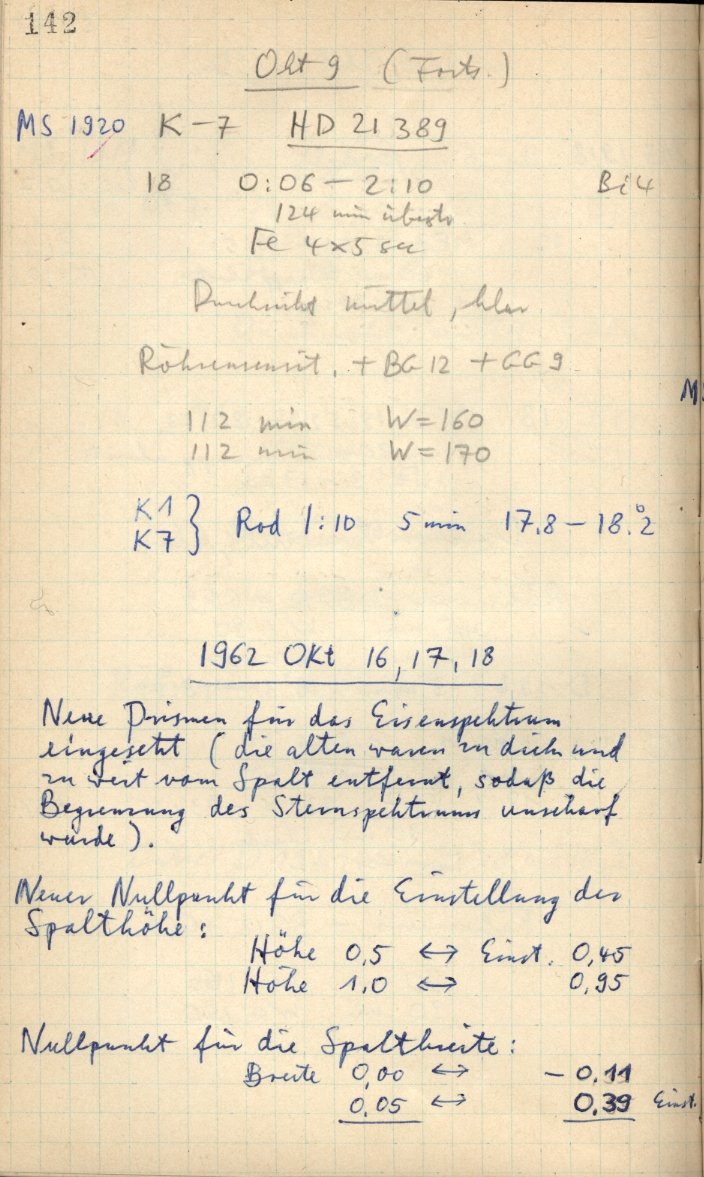 142
Okt 9 (Forts.)
MS 1920 K-7 HD 21389
18 0:06 – 2:10 Bi 4
124 min überstr
Fe 4×5 sec
Durchsicht mittel, klar
Röhrensensit. + BG 12 + GG 9
112 min W = 160
112 min W = 170
K1
K7 } Rod 1:10 5 min 17,8 – 18,°2
1962 Okt 16, 17, 18
Neue Prismen für das Eisenspektrum
eingesetzt (die alten waren zu dick und
zu weit vom Spalt entfernt, sodaß die
Begrenzung des Sternspektrums unscharf
wurde).
Neuer Nullpunkt für die Einstellung der
Spalthöhe:
Höhe 0,5 ↔ Einst. 0,45
Höhe 1,0 ↔ 0,95
Nullpunkt für die Spaltbreite:
Breite 0,00 ↔ – 0.11
0,05 ↔ 0.39 Einst.